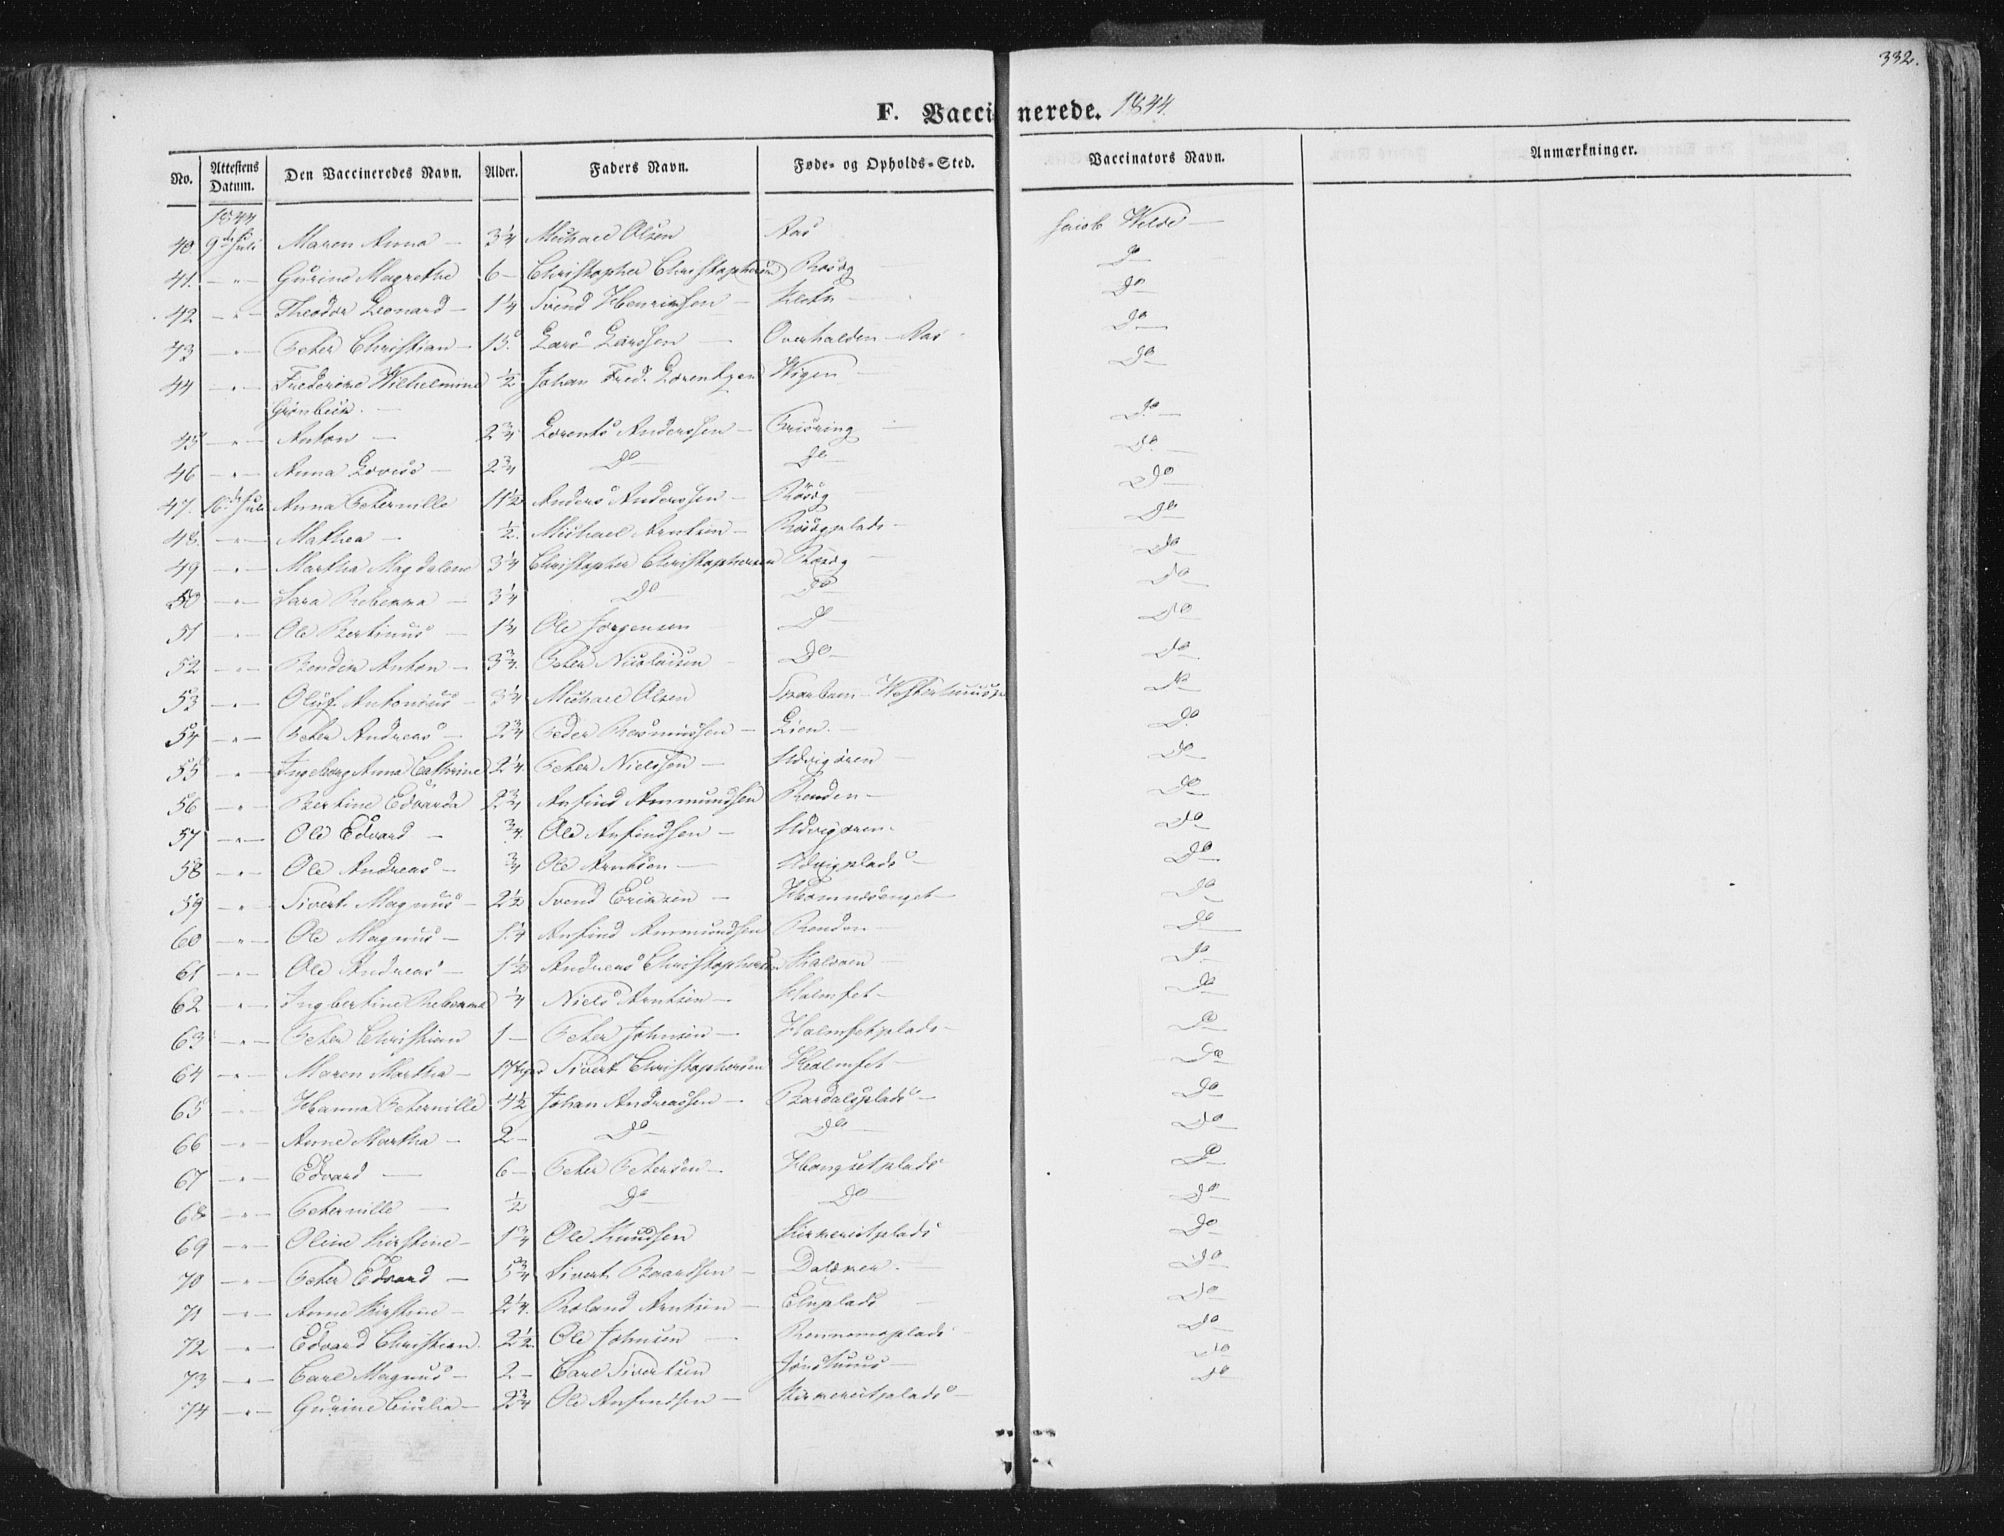 332.
F. Vaccinerede. 1844.
No. Attestens Datum. Den Vaccineredes Navn. Alder. Faders Navn. Føde- og Opholds-Sted. Vaccinators Navn. Anmærkninger.
1844
40 9de Juli Maren Anna — 3 1/4 Michael Olsen Aas Jacob Welde —
41. — " — Gurine Magrethe 6 — Christopher Christophersen Do
42 — " — Theodor Leonard — 1 1/4 Svend Henriksen — Do
43 — " — Peter Christian — 13. Lars Larssen — Overhalden — Aas Do
44 — " — Frederike Wilhelmine 1/2 Johan Fred. Lorentzen Wigen — Do
Grönbech. —
45 — " — Anton — 2 3/4 Lorents Anderssen — Do
46 — " — Anna Lovise — 2 3/4 Do Do Do
47. 10de Juli Anna Peternille 11 1/2 Anders Anderssen — Do
48. — " — Mathea — 1/2 Michael Arntsen — Do
49 — " — Martha Magdalene 3 1/4 Christopher Christophersen Do
50 — " — Sara Rebekka — 3 1/4 Do Do Do
51 — " — Ole Bertinus — 1 3/4 Ole Jørgensen Do Do
52 — " — Anton — 3 3/4. Peter Nicolaisen Do Do
53 — " — Oluf Antonius — 3 1/4 Michael Olsen Do
54 — " — Peter Andreas — 2 3/4 Peder Rasmussen — Lien. — Do
55 — " — Ingeborg Anna Cathrine 2 1/4 Peter Nielssen — Do
56 — " — Bertine Edvarda 2 3/4 Anfind Ammundsen Do
57 — " — Ole Edvard — 3/4. Ole Anfindsen — Do
58 — " — Ole Andreas — 3/4 Ole Arntsen — Do
59 — " — Sivert Magnus — 2 1/2 Svend Eriksen — Do
60 — " — Ole Magnus — Anfind Ammundsen Do
61 — " — Ole Andreas — 1 1/2 Andreas Christophersen Do
62 — " — Ingbertine Rebekka 1/4 Niels Arntsen — Halmset — Do
63 — " — Peter Christian 1 — Peter Johnsen — Halmsetplads — Do
64 — " — Maren Martha — Sivert Christophersen Halmset — Do
65 — " — Hanna Peternille 4 1/2 Johan Andreassen — Bardalsplads — Do
66 — " — Anne Martha — 2 — Do Do Do
67 — " — Edvard — 6 — Peter Petersen — Do
68 — " — Peternille — 1/2 Do Do Do
69 — " — Oline Kirstine — 1 3/4 Ole Knudsen Do
70 — " — Peter Edvard — 5 3/4 Sivert Baardsen — Do
71 — " — Anne Kirstine — 2 1/4. Roland Arntsen — Do
72 — " — Edvard Christian. 2 1/2. Ole Johnsen — Do
73 — " — Carl Magnus — 2 — Carl Sivertsen Do
74 — " — Gurine — 2 3/4 Ole Anfindsen — Do